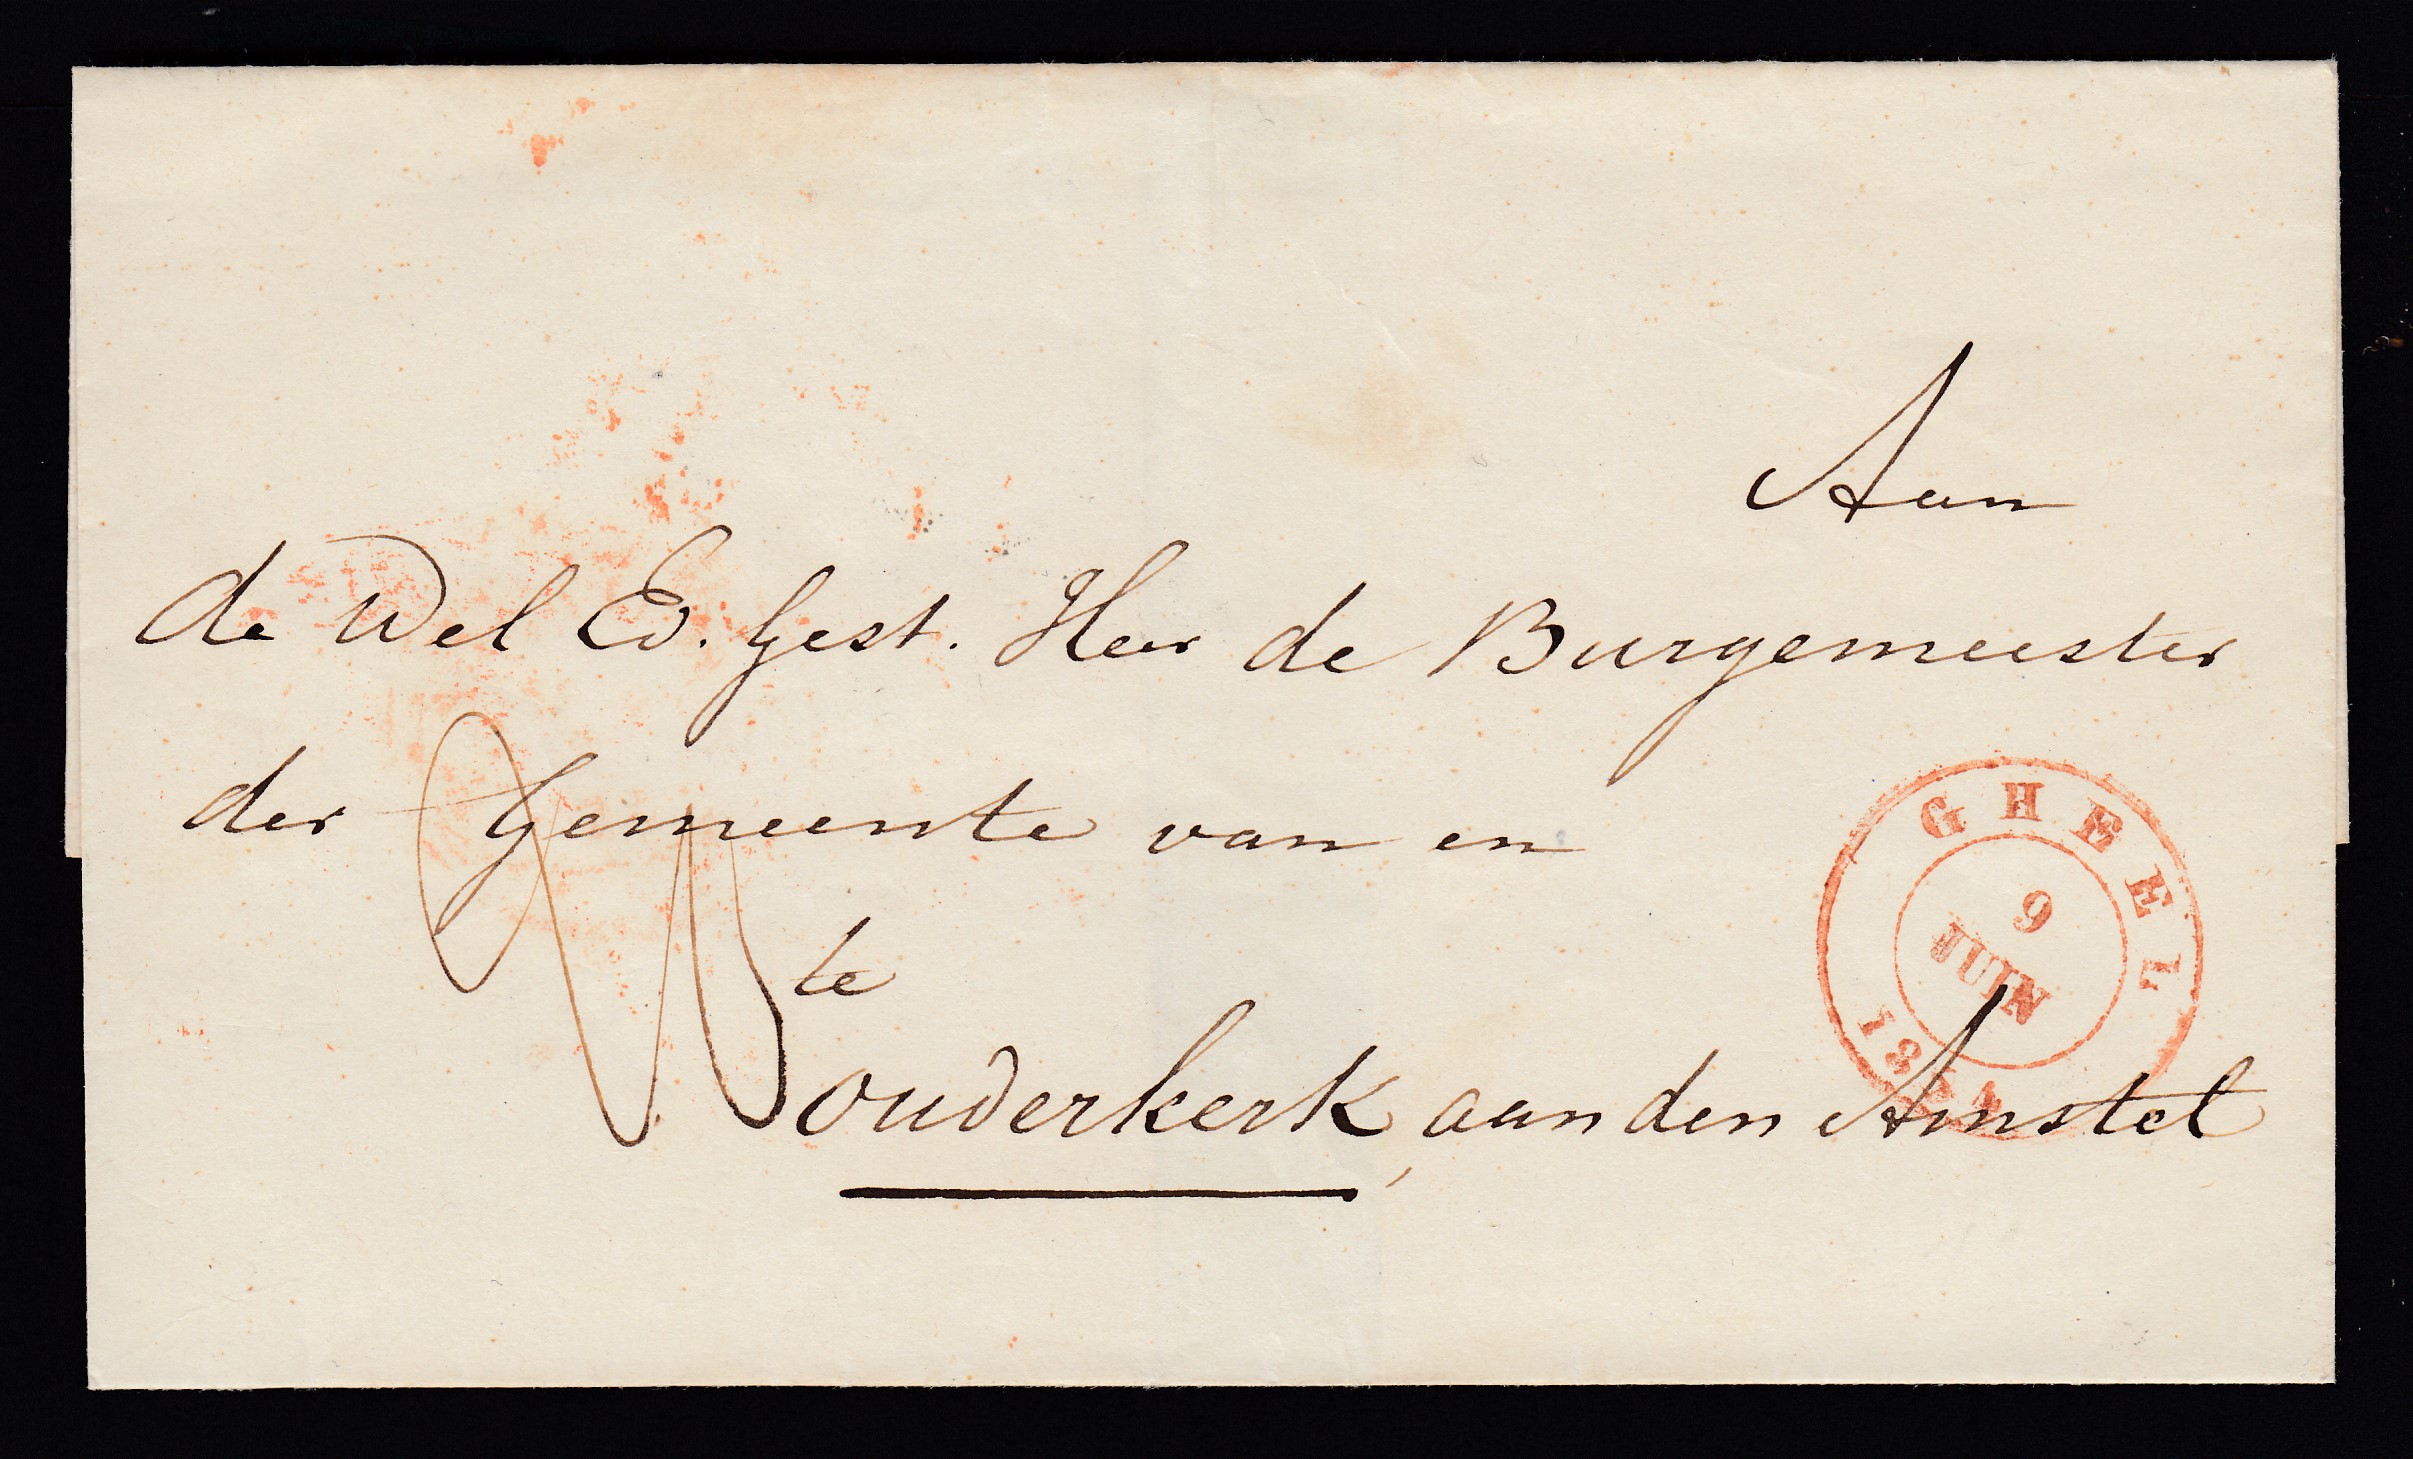 Aan
de Wel Ed. Gest. Heer de Burgemeester
der Gemeente van en
te
ouderkerk, aan den Amstel
GHEEL
9
JUIN